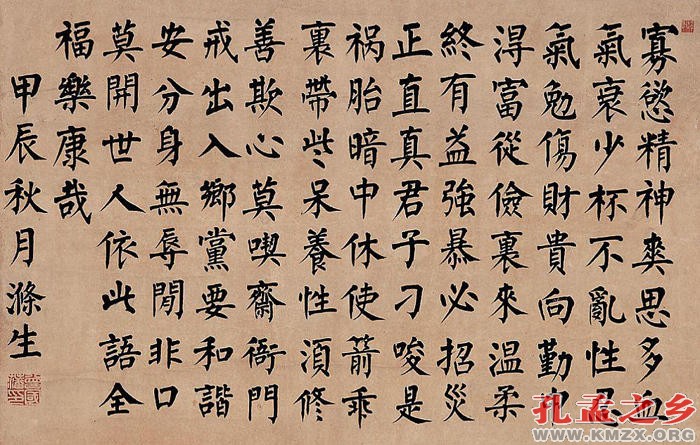 寡慾精神爽思多血
氣衰少杯不亂性忍
氣勉傷財貴向勤中
淂富從儉裏來温柔
終有益強暴必招災
正直真君子刁唆是
祸胎暗中休使箭乖
裏帶些呆養性湏修
善欺心莫喫齋衙門
戒出入鄉黨要和諧
安分身無辱閒非口
莫開世人依此語全
福樂康哉
甲辰秋月滌生
孔孟之乡
WWW.KMZX.ORG